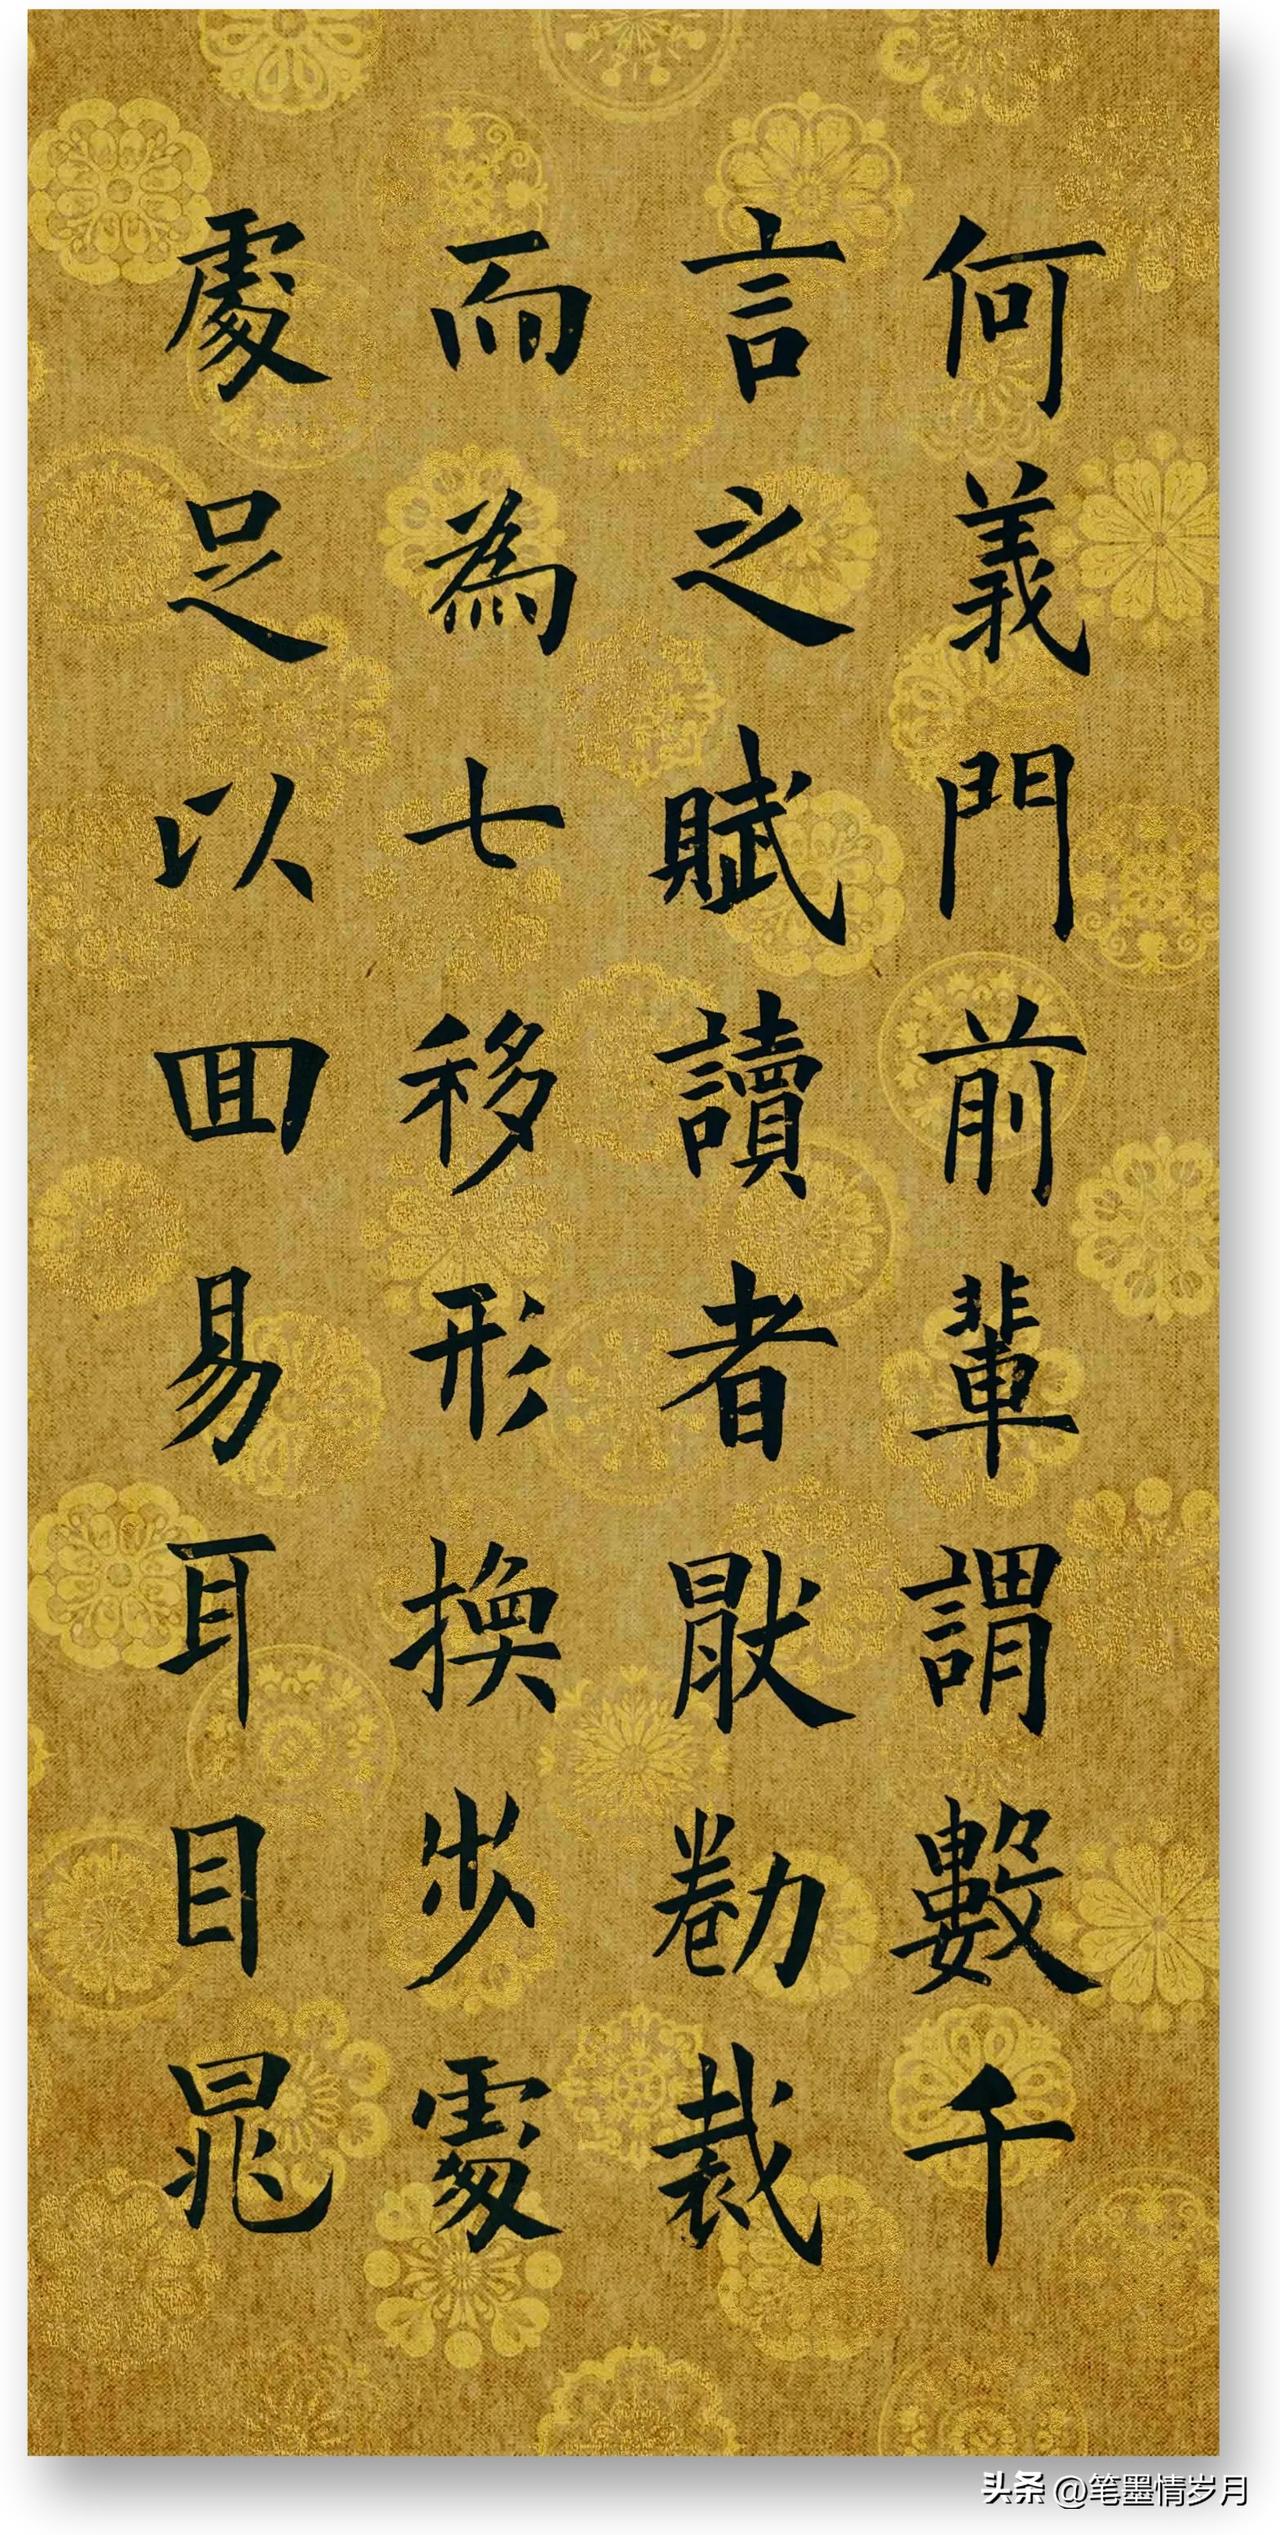 何義門前輩謂數千
言之賦讀者猒勌裁
而為七移形換步處
處足以囬易耳目晁
头条 @笔墨情岁月